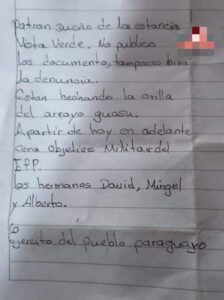 Patron Dueño de la estancia
Nota Verde. No publico
los documento, tampoco hiso
la denuncia.
Estan hechando la orilla
del arroyo guasu.
Apartir de hoy en adelante
cera Objetivo Militar del
E.P.P.
los hermanos David, Mingel
y Alberto.
ejercito del pueblo paraguayo